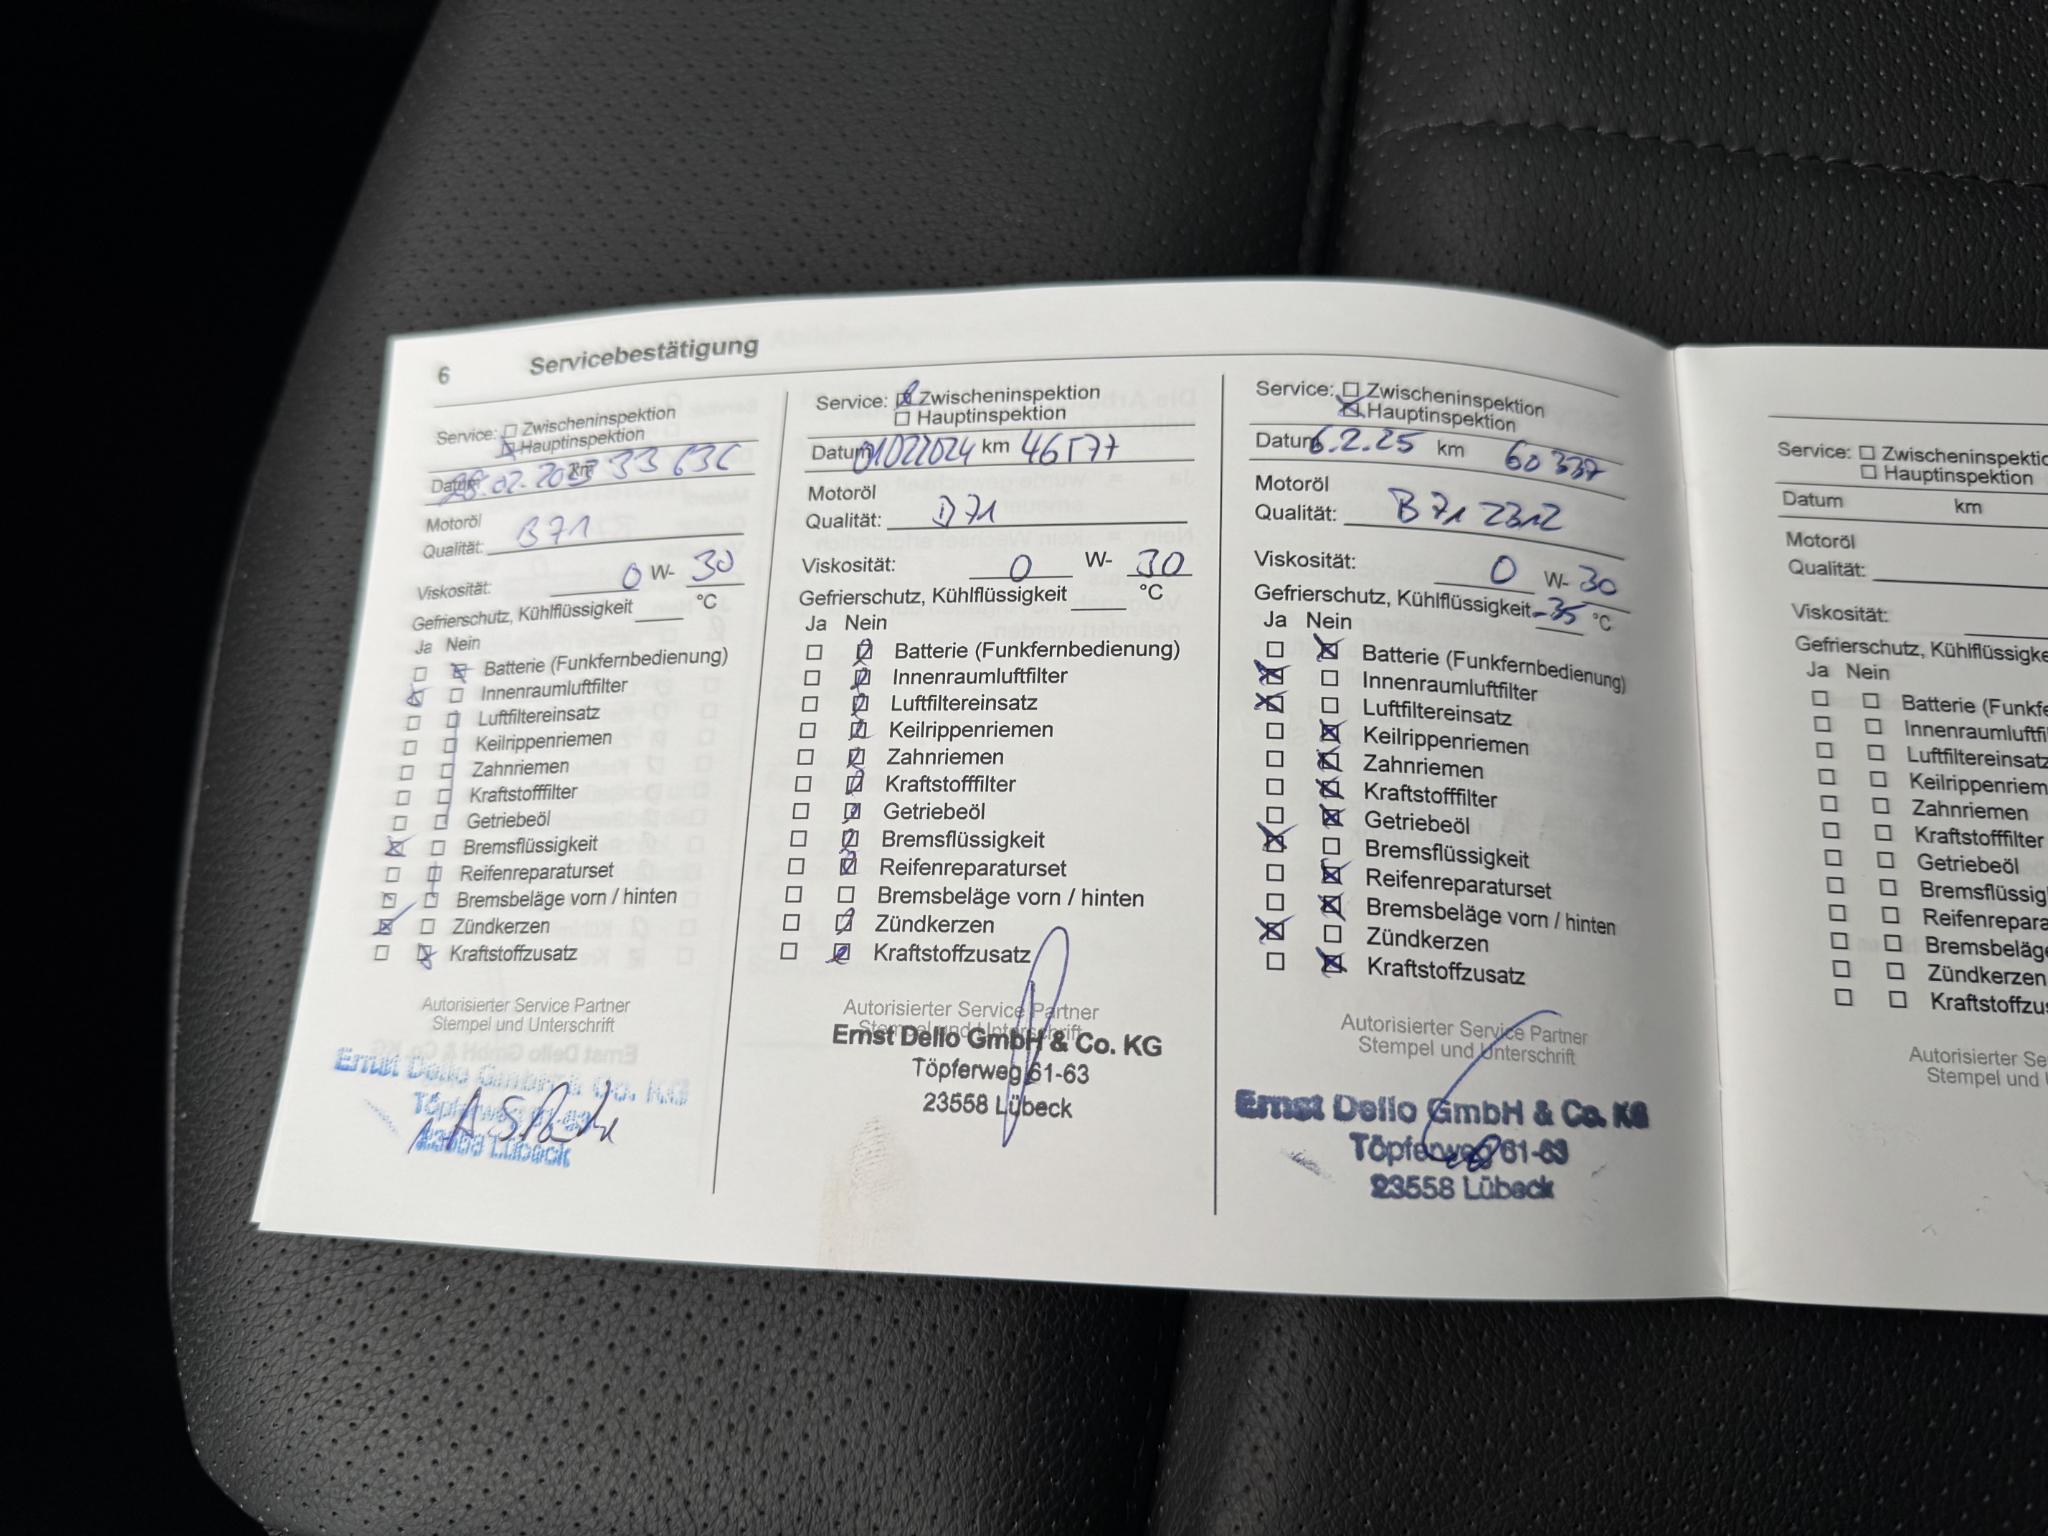 6 Servicebestätigung
Service: Zwischeninspektion
Hauptinspektion
Datum 28.02.2023 km 33 636
Motoröl
Qualität: B71
Viskosität: 0 W- 30
Gefrierschutz, Kühlflüssigkeit °C
Ja Nein
Batterie (Funkfernbedienung)
Innenraumluftfilter
Luftfiltereinsatz
Keilrippenriemen
Zahnriemen
Kraftstofffilter
Getriebeöl
Bremsflüssigkeit
Reifenreparaturset
Bremsbeläge vorn / hinten
Zündkerzen
Kraftstoffzusatz
Autorisierter Service Partner
Stempel und Unterschrift
Ernst Dello GmbH & Co. KG
Töpferweg 61-63
23558 Lübeck
Service: Zwischeninspektion
Hauptinspektion
Datum 01022024 km 46577
Motoröl
Qualität: D71
Viskosität: 0 W- 30
Gefrierschutz, Kühlflüssigkeit °C
Ja Nein
Batterie (Funkfernbedienung)
Innenraumluftfilter
Luftfiltereinsatz
Keilrippenriemen
Zahnriemen
Kraftstofffilter
Getriebeöl
Bremsflüssigkeit
Reifenreparaturset
Bremsbeläge vorn / hinten
Zündkerzen
Kraftstoffzusatz
Autorisierter Service Partner
Stempel und Unterschrift
Ernst Dello GmbH & Co. KG
Töpferweg 61-63
23558 Lübeck
Service: Zwischeninspektion
Hauptinspektion
Datum 6.2.25 km 60 337
Motoröl
Qualität: B71 2312
Viskosität: 0 W- 30
Gefrierschutz, Kühlflüssigkeit -35 °C
Ja Nein
Batterie (Funkfernbedienung)
Innenraumluftfilter
Luftfiltereinsatz
Keilrippenriemen
Zahnriemen
Kraftstofffilter
Getriebeöl
Bremsflüssigkeit
Reifenreparaturset
Bremsbeläge vorn / hinten
Zündkerzen
Kraftstoffzusatz
Autorisierter Service Partner
Stempel und Unterschrift
Ernst Dello GmbH & Co. KG
Töpferweg 61-63
23558 Lübeck
Service: Zwischeninspektio
Hauptinspektion
Datum km
Motoröl
Qualität:
Viskosität:
Gefrierschutz, Kühlflüssigke
Ja Nein
Batterie (Funkfe
Innenraumluftfil
Luftfiltereinsatz
Keilrippenriem
Zahnriemen
Kraftstofffilter
Getriebeöl
Bremsflüssig
Reifenrepara
Bremsbeläge
Zündkerzen
Kraftstoffzu
Autorisierter Se
Stempel und